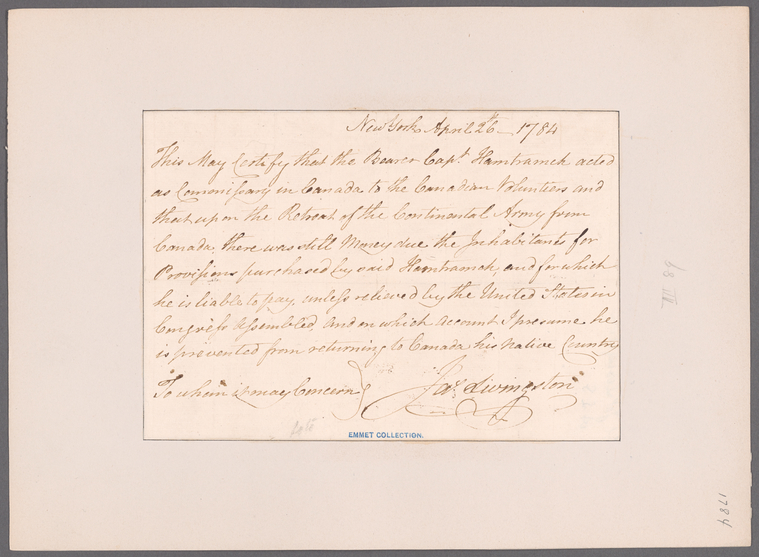 New York April 26th 1784
This May Certify that the Bearer Capt. Hamtramck acted
as Commissary in Canada to the Canadian Voluntiers and
that upon the Retreat of the Continental Army from
Canada, there was still Money due the Inhabitants for
Provisions purchased by said Hamtramck, and for which
he is liable to pay, unless relieved by the United States in
Congress Assembled, and on which account I presume he
is prevented from returning to Canada his native Country
To whom it may Concern } Jas. Livingston
EMMET COLLECTION.
1784